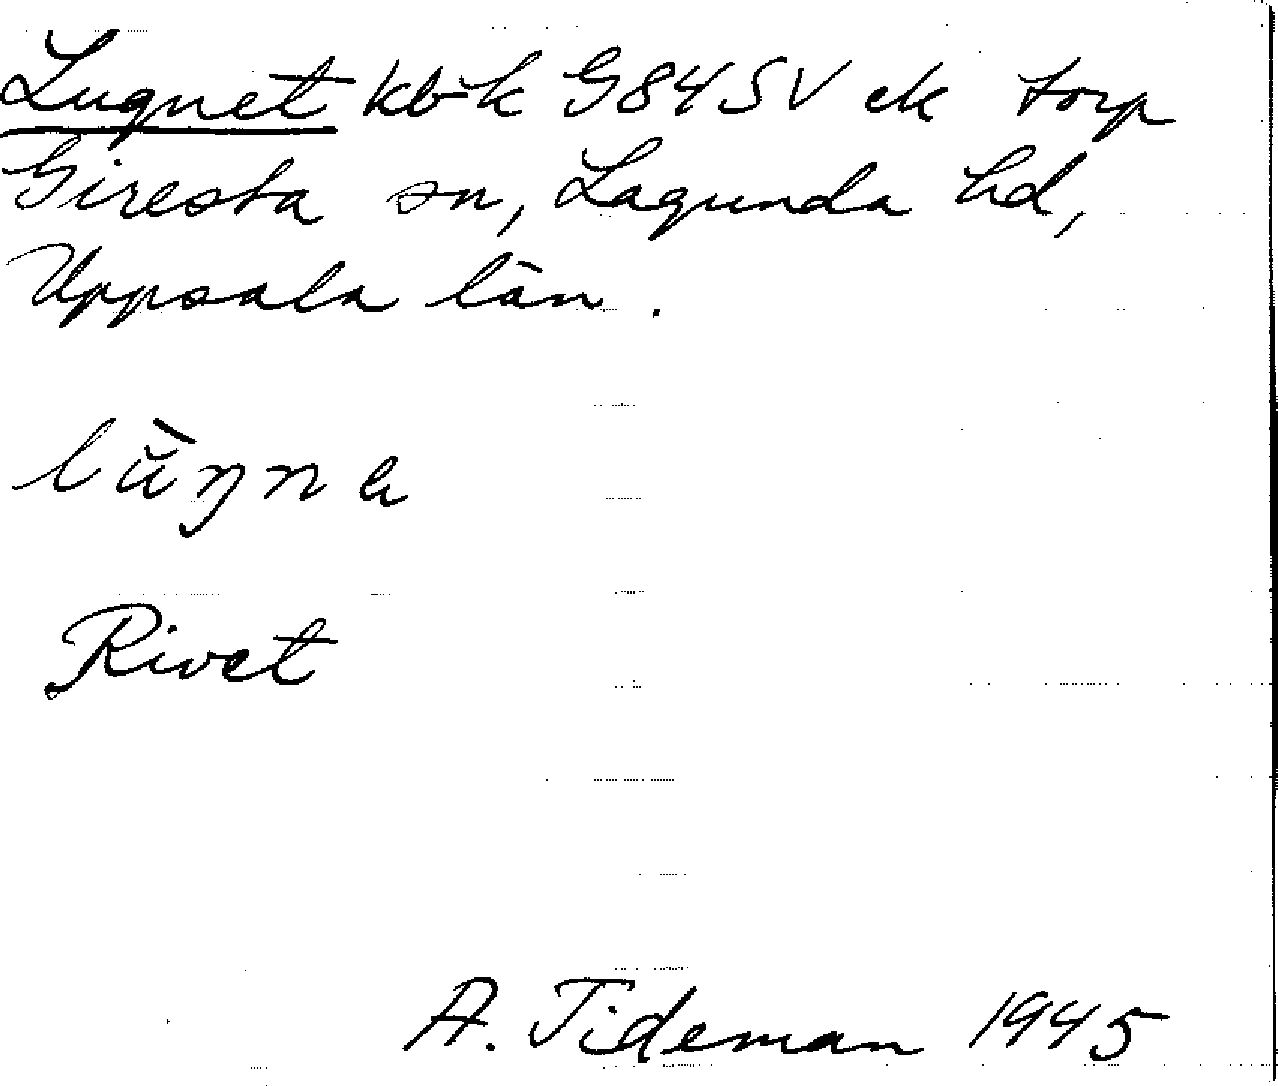 Lugnet kbk G84SV ek torp
Giresta sn, Lagunda hd,
Uppsala län.
lu̇̀ŋna
Rivet
A. Tideman 1945